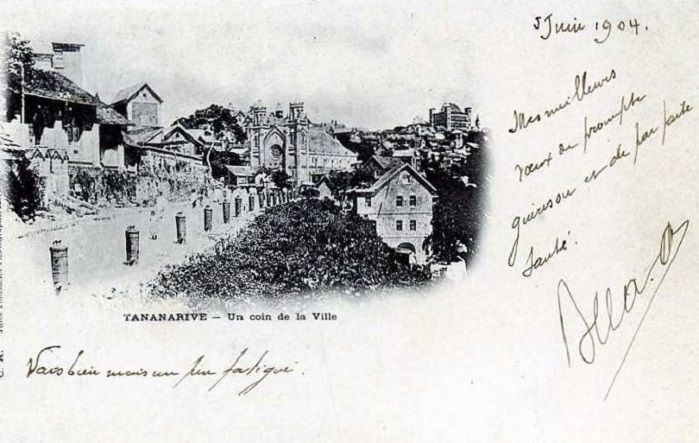 5 Juin 1904.
Mes meilleurs
vœux de prompte
guérison et de parfaite
santé.
TANANARIVE — Un coin de la Ville
Vais bien mais un peu fatigué.